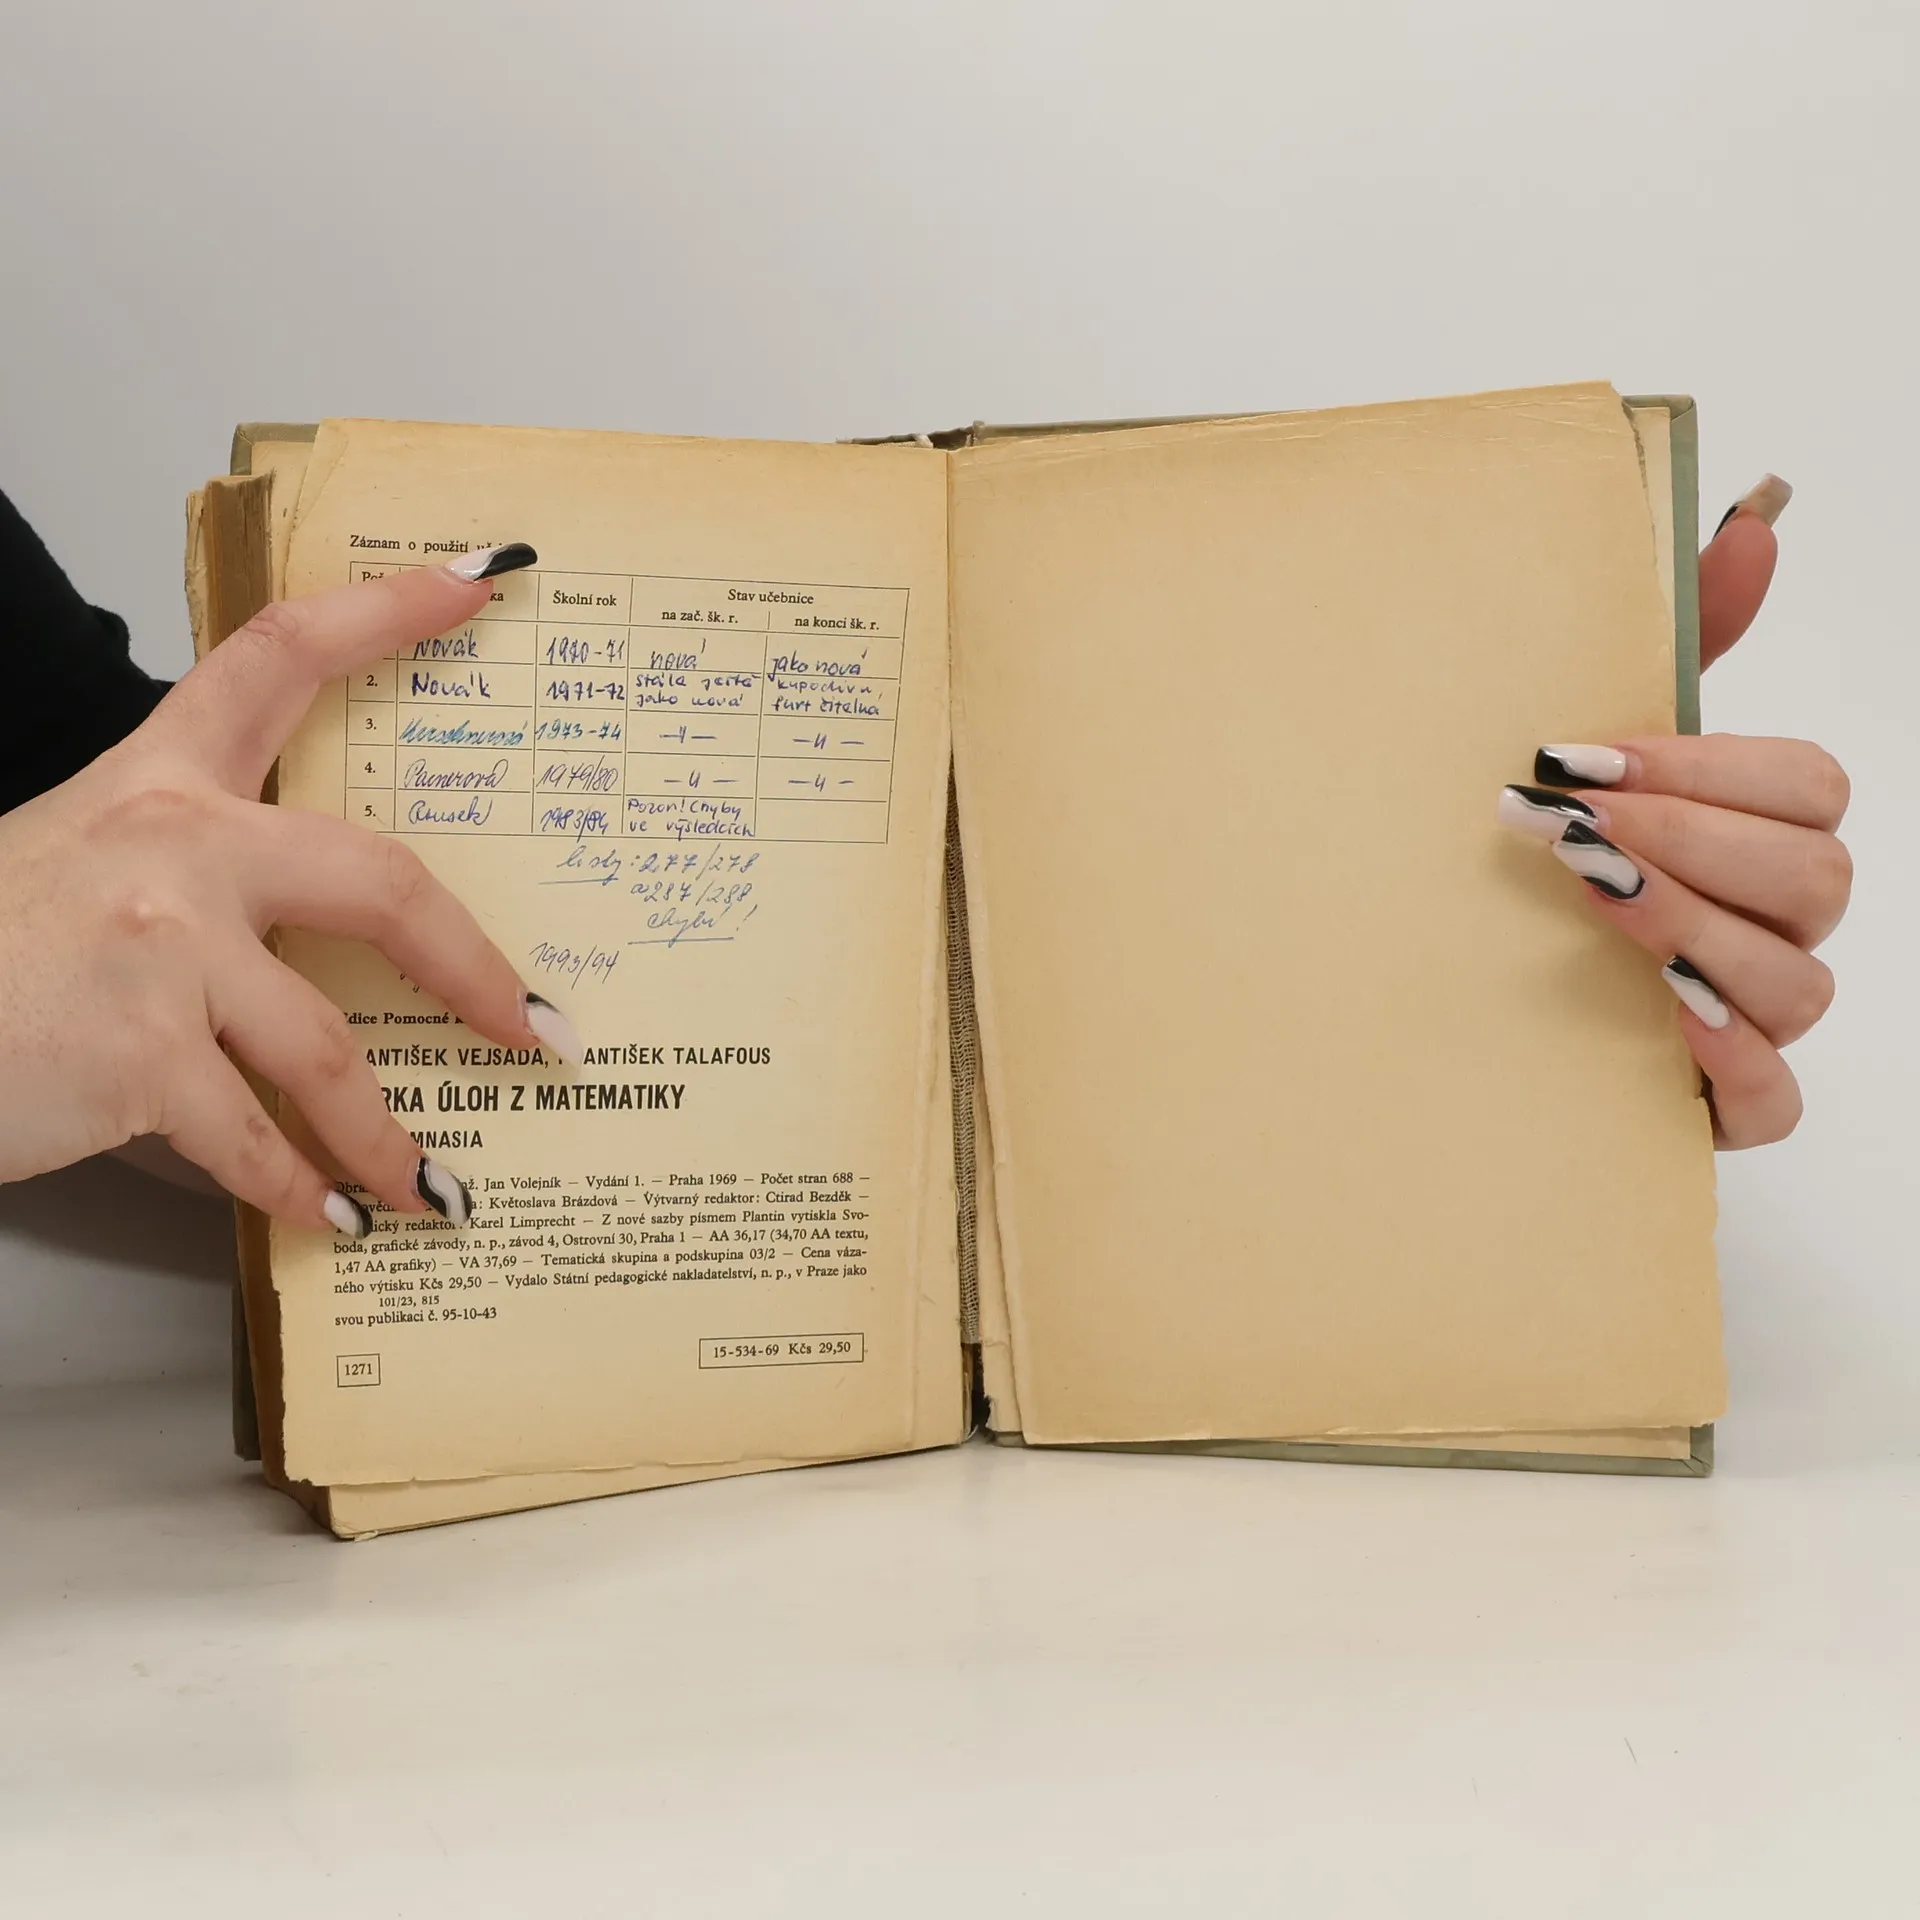 Záznam o použití
Školní rok Stav učebnice
na zač. šk. r. na konci šk. r.
Novák 1970-71 nová jako nová
2. Novák 1971-72 stále ještě jako nová kupodivu, furt čitelná
3. 1973-74 —"— —"—
4. 1979/80 —"— —"—
5. 1983/84 Pozor! Chyby ve výsledcích
listy: 277/278
a 287/288
chybí!
1993/94
Pomocné
VEJSADA, TALAFOUS
ÚLOH Z MATEMATIKY
Jan Volejník — Vydání 1. — Praha 1969 — Počet stran 688 —
Květoslava Brázdová — Výtvarný redaktor: Ctirad Bezděk —
redaktor: Karel Limprecht — Z nové sazby písmem Plantin vytiskla Svo-
boda, grafické závody, n. p., závod 4, Ostrovní 30, Praha 1 — AA 36,17 (34,70 AA textu,
1,47 AA grafiky) — VA 37,69 — Tematická skupina a podskupina 03/2 — Cena váza-
ného výtisku Kčs 29,50 — Vydalo Státní pedagogické nakladatelství, n. p., v Praze jako
101/23, 815
svou publikaci č. 95-10-43
15-534-69 Kčs 29,50
1271